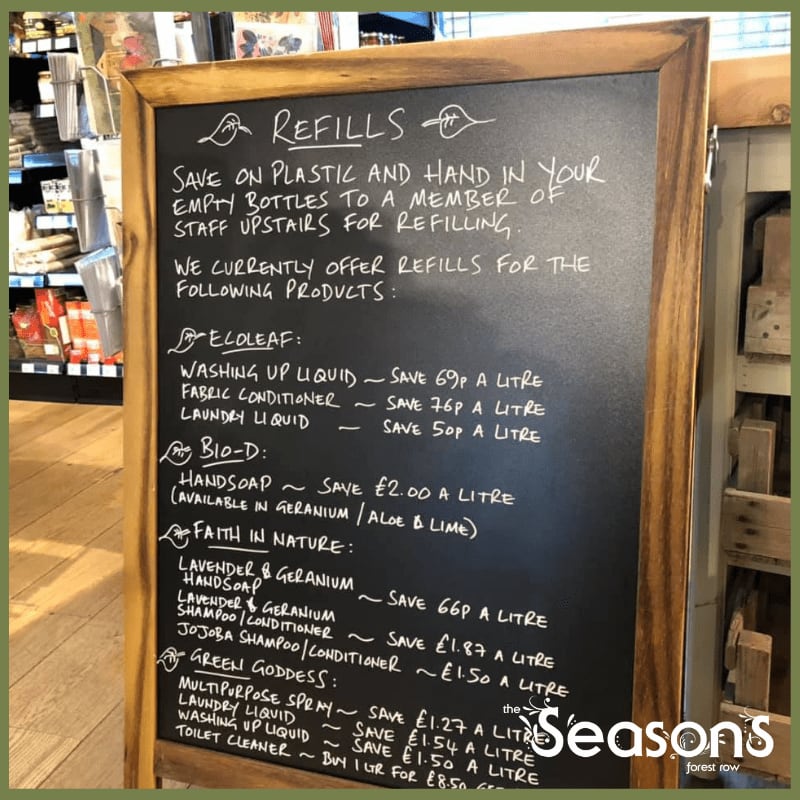 REFILLS
SAVE ON PLASTIC AND HAND IN YOUR
EMPTY BOTTLES TO A MEMBER OF
STAFF UPSTAIRS FOR REFILLING.
WE CURRENTLY OFFER REFILLS FOR THE
FOLLOWING PRODUCTS:
ECOLEAF:
WASHING UP LIQUID ~ SAVE 69p A LITRE
FABRIC CONDITIONER ~ SAVE 76p A LITRE
LAUNDRY LIQUID ~ SAVE 50p A LITRE
BIO-D:
HANDSOAP ~ SAVE £2.00 A LITRE
(AVAILABLE IN GERANIUM / ALOE & LIME)
FAITH IN NATURE:
LAVENDER & GERANIUM
HANDSOAP ~ SAVE 66p A LITRE
LAVENDER & GERANIUM
SHAMPOO/CONDITIONER ~ SAVE £1.87 A LITRE
JOJOBA SHAMPOO/CONDITIONER ~ £1.50 A LITRE
GREEN GODDESS:
MULTIPURPOSE SPRAY ~ SAVE £1.27 A LITRE
LAUNDRY LIQUID ~ SAVE £1.54 A LITRE
WASHING UP LIQUID ~ SAVE £1.50 A LITRE
TOILET CLEANER ~ BUY 1 LTR FOR £8.50
the
Seasons
forest row